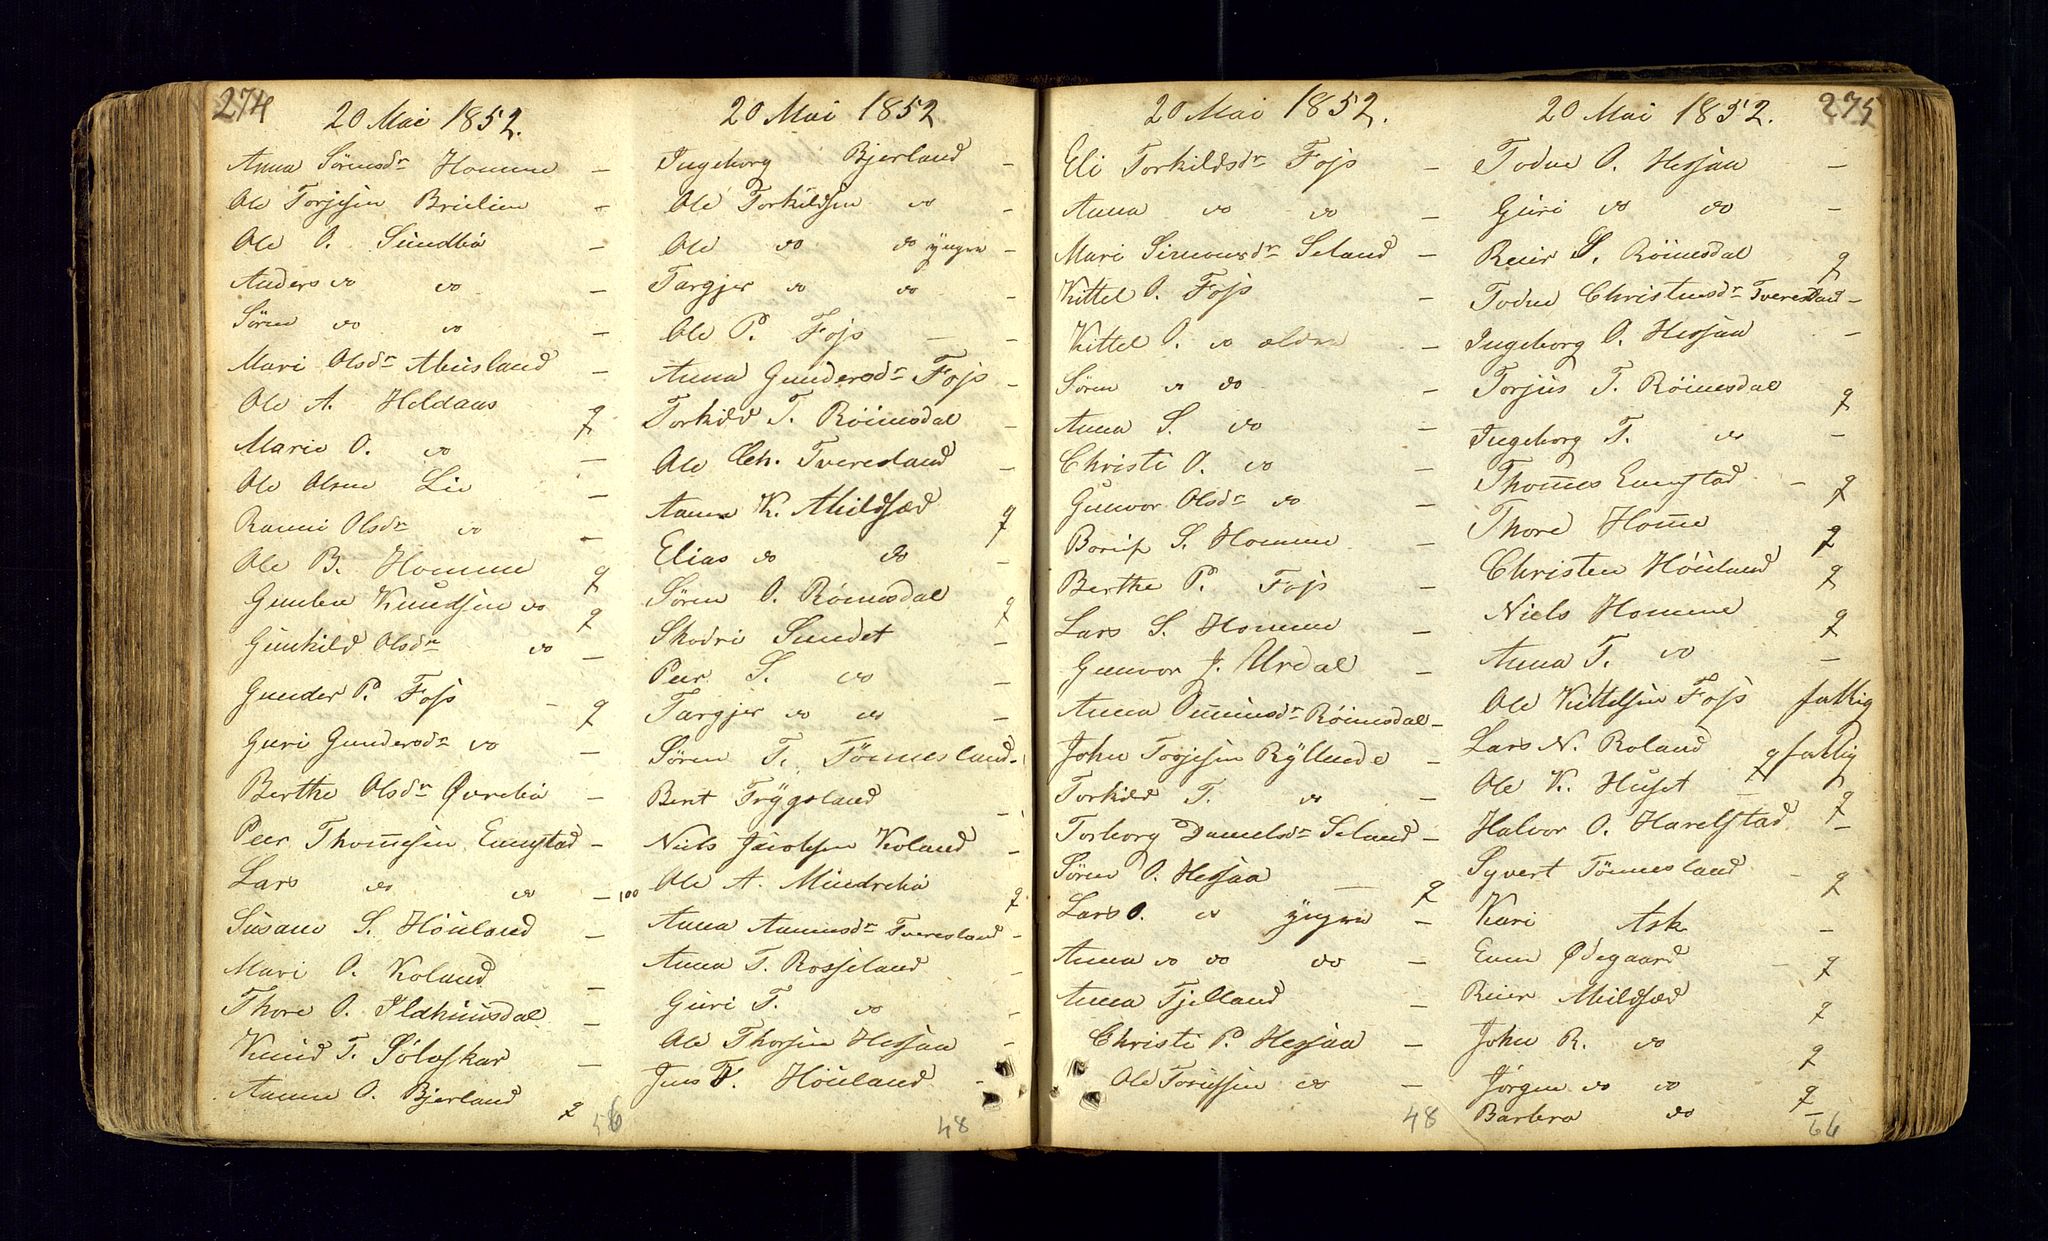 274
20 Mai 1852.
Anna Sörensdr Homme –
Ole Torjesen Brielien –
Ole O. Sundbö –
Anders do do –
Sören do do –
Mari Olsdr Abusland –
Ole A. Heldaas g
Marie O. do –
Ole Olsen Lie –
Ranni Olsdr do –
Ole B. Homme g
Gunlew Knudsen do g
Gunhild Olsdr do –
Gunder P. Fojs – g
Guri Gundersdr do –
Berthe Olsdr Øvrebö –
Peer Thom̅esen Eunstad –
Lars do do – 100
Susane S. Höuland –
Mari O. Roland –
Thore O. Ildhuusdal –
Knud T. Döleskar –
Aanen O. Bjerland g
56
20 Mai 1852
Ingeborg Bjerland –
Ole Torkildsen do –
Ole do do yngre –
Targjer do do –
Ole P. Fojs –
Anna Gundersdr Fojs –
Torkild T. Röinesdal –
Ole Ch. Tveresland –
Aanen K. Mildsæd g
Elias do do –
Sören O. Röinesdal g
Skodvi Sundet –
Peer S. do –
Targjer do do –
Sören T. Tönnesland –
Bent Trygsland –
Niels Jacobsen Roland –
Ole A. Mindrebö g
Anna Aanensdr Tveresland –
Anna T. Rosseland –
Guri T. do –
Ole Thorsen Hessaa –
Jens T. Höuland –
48
20 Mai 1852.
Eli Torkildsdr Fojs –
Anna do do –
Mari Simonsdr Seland –
Kittel O. Fojs –
Kittel O. do ældre –
Sören do do –
Anna S. do –
Christi O. do –
Gunvor Olsdr do –
Borip S. Homme –
Berthe P. Fojs –
Lars S. Homme –
Gunvor J. Urdal –
Anna Om̅unsdr Röinesdal –
John Torjesen Ryllende –
Torkild T. do –
Torborg Danielsdr Seland –
Sören O. Hessaa – g
Lars O. do yngre –
Anna do do do –
Anna Fjelland –
Christi P. Hessaa –
Ole Toruffsen do –
48
275
20 Mai 1852.
Todne O. Hessaa –
Guri do do –
Reier S. Röinesdal g
Todne Christensdr Tveresland –
Ingeborg O. Hessaa –
Torjus T. Röinesdal g
Ingeborg T. do –
Thom̅es Eunstad – g
Thore Hom̅e g
Christen Höuland g
Niels Homme g
Anna T. do –
Ole Kittelsen Fojs fattig
Lars N. Roland g fattig
Ole K. Huset – g
Halvor O. Harelstad –
Syvert Tönnesland – g
Kari Ask –
Even Ødegaard – g
Reier Mildsæd g
John R. do g
Jörgen do do g
Barbra do –
66